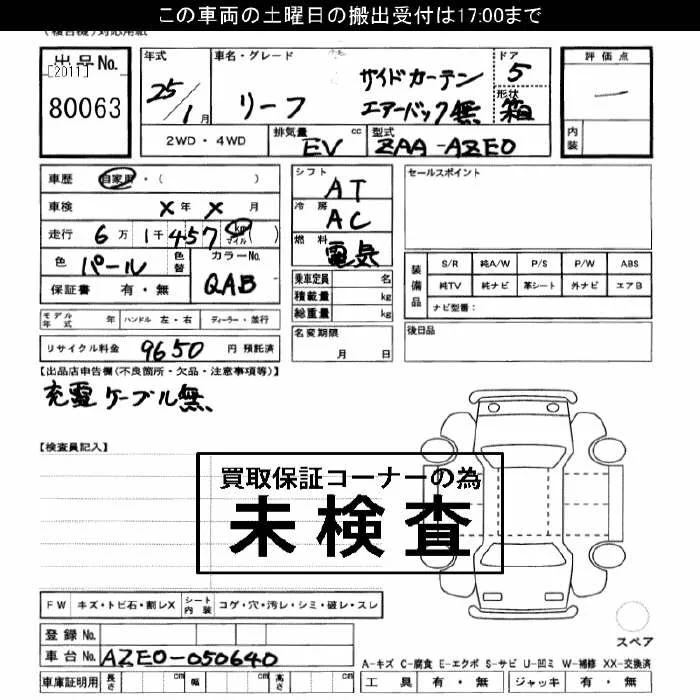 この車両の土曜日の搬出受付は17:00まで
出品No.
[2011]
80063
年式
25/1月
車名・グレード
リーフ
サイドカーテン
エアーバック無
ドア
5
形状
箱
評価点
—
内装
2WD・4WD
排気量 cc
EV
型式
ZAA-AZE0
車歴 自家用・( )
車検 X年 X月
走行 6万1千457 km マイル ( )
色 パール 色替
カラーNo.
QAB
保証書 有・無
シフト
AT
冷房
AC
燃料
電気
乗車定員 名
積載量 kg
総重量 kg
セールスポイント
装備品
S/R 純A/W P/S P/W ABS
純TV 純ナビ 革シート 外ナビ エアB
ナビ型番:
モデル年式 年 ハンドル 左・右 ディーラー・並行
名変期限
月 日
後日品
リサイクル料金 9650 円 預託済
【出品店申告欄(不良箇所・欠品・注意事項等)】
充電ケーブル無、
【検査員記入】
買取保証コーナーの為
未検査
FW キズ・トビ石・割レX シート内装 コゲ・穴・汚レ・シミ・破レ・スレ
登録No.
車台No. AZE0-050640
車庫証明用 長さ cm 幅 cm 高さ cm
スペア
A-キズ C-腐食 E-エクボ S-サビ U-凹ミ W-補修 XX-交換済
工具 有・無 ジャッキ 有・無